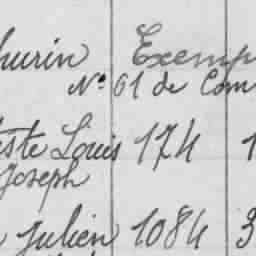 hurin Exemp
N° 61 de Com
iste Louis 174 1
Joseph
Julien 1084 3